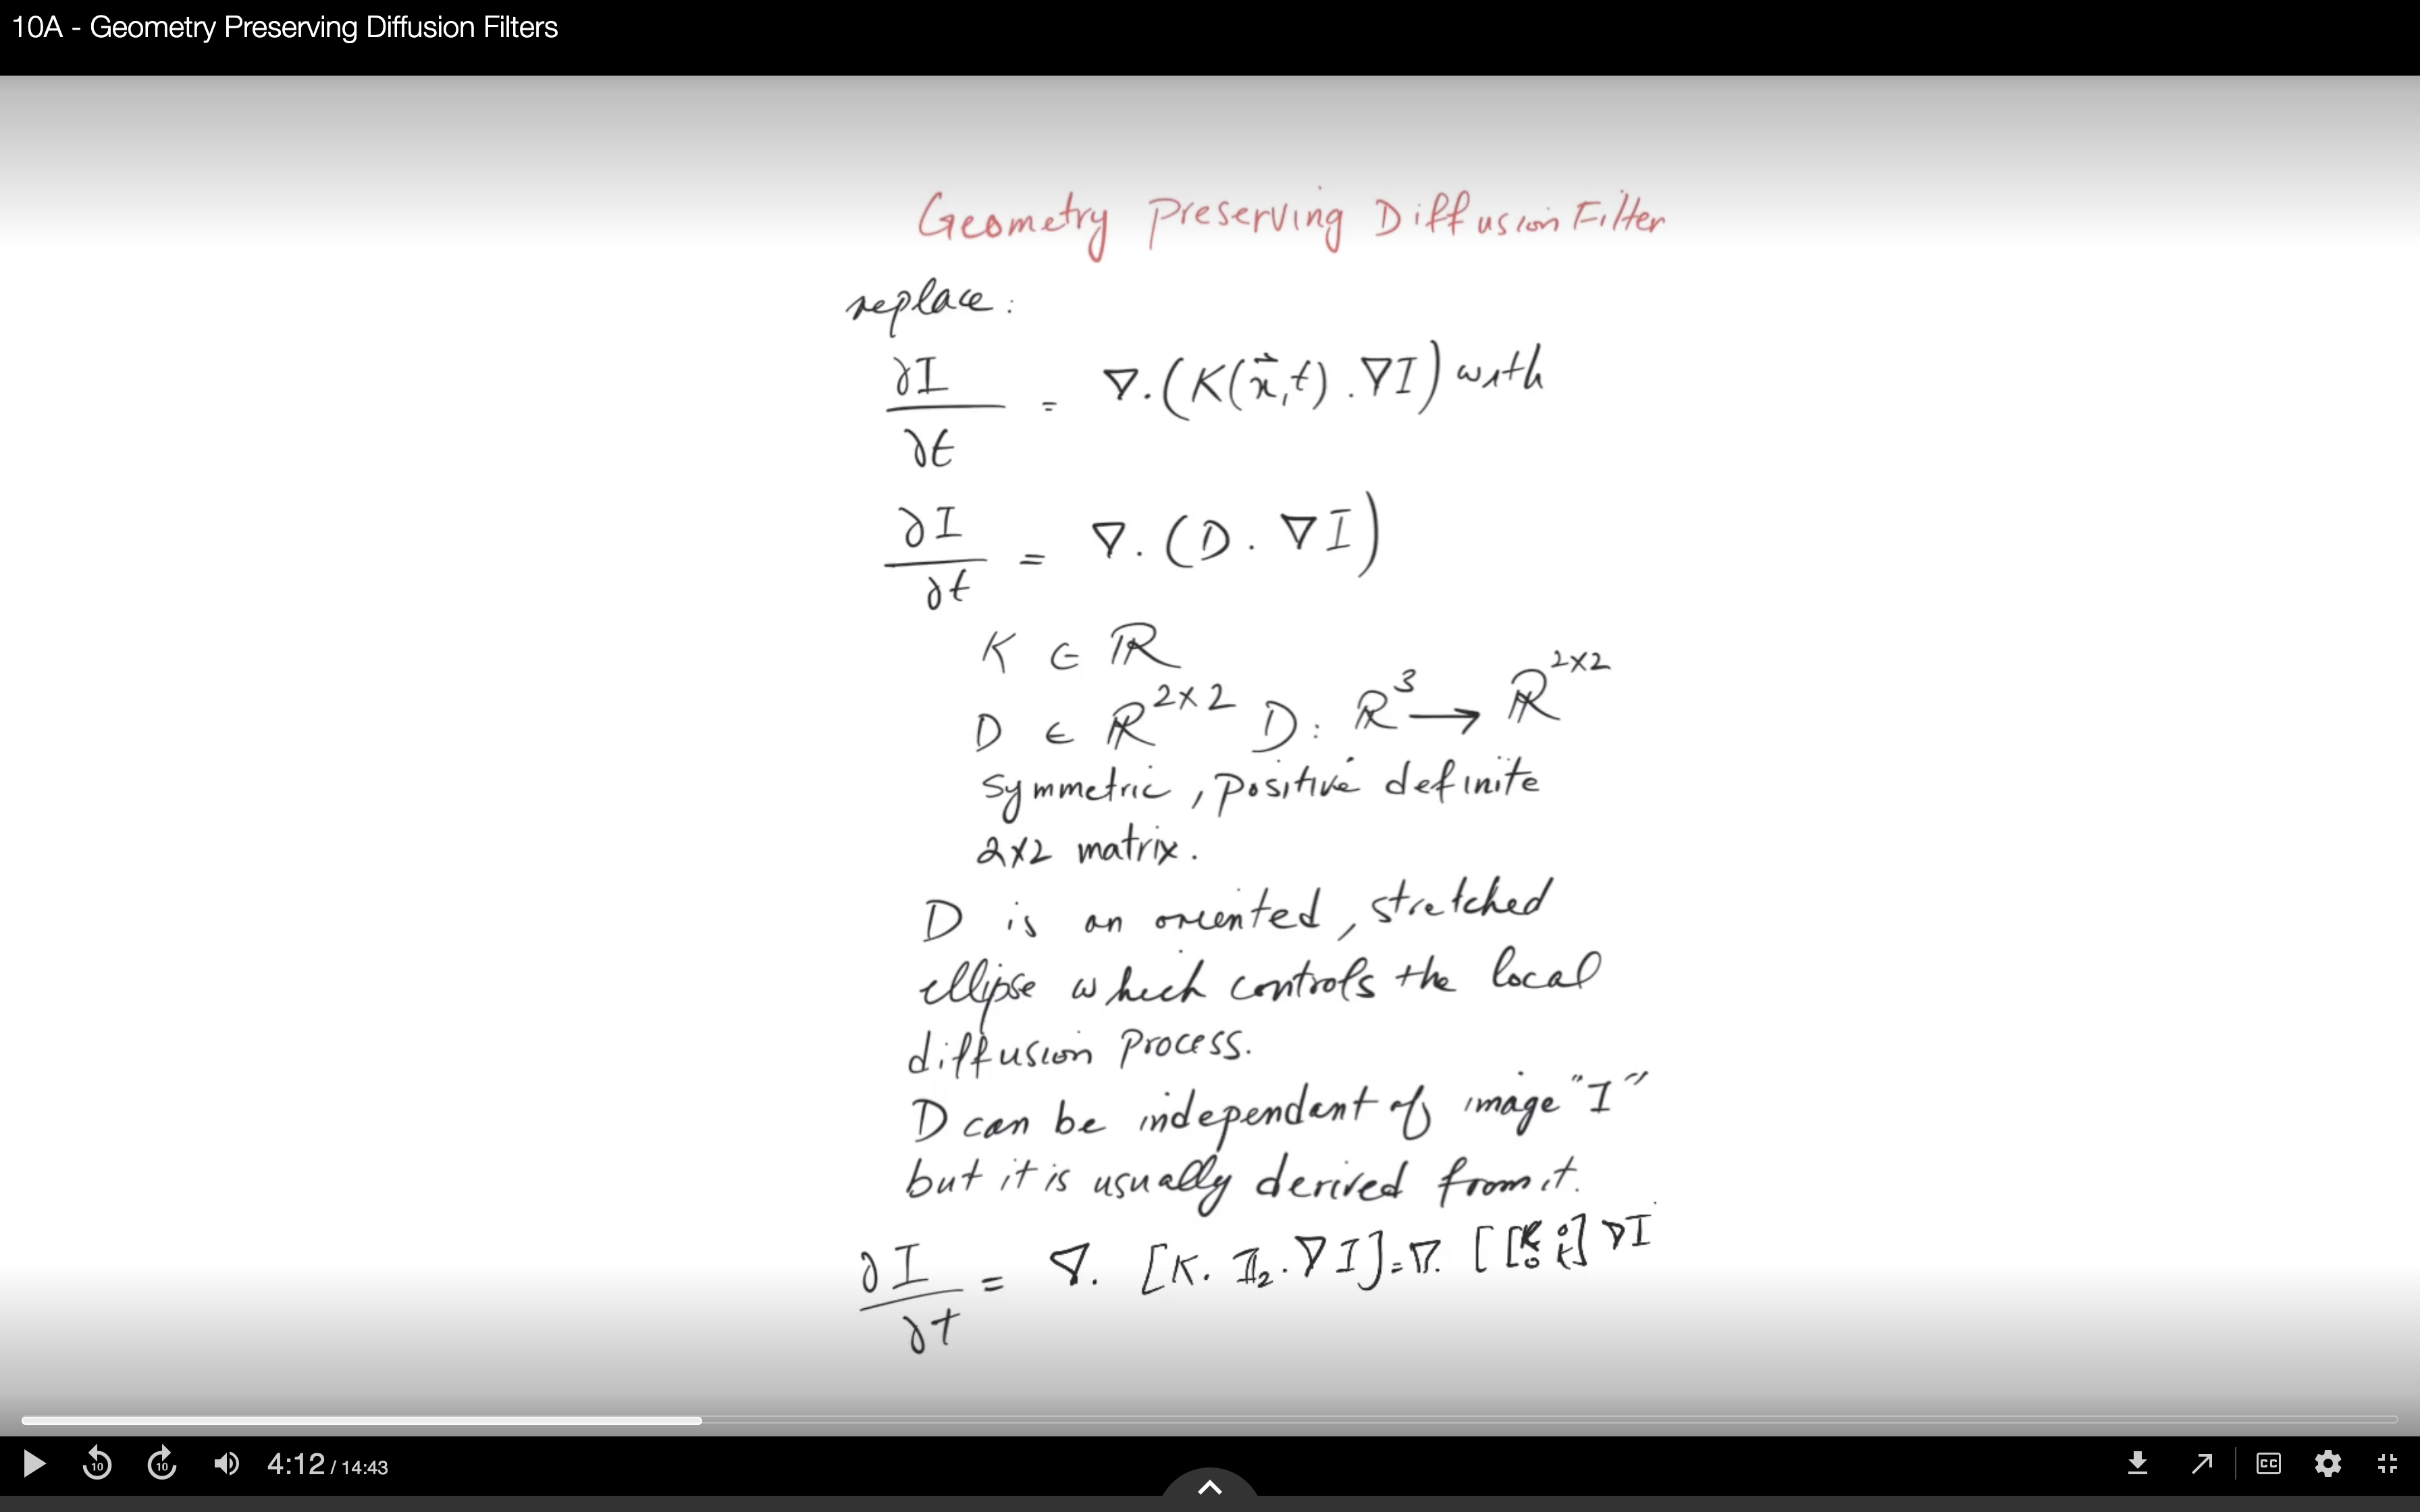 10A - Geometry Preserving Diffusion Filters
Geometry Preserving Diffusion Filter
replace:
∂I/∂t = ∇.(K(x⃗,t).∇I) with
∂I/∂t = ∇.(D.∇I)
K ∈ ℝ
D ∈ ℝ^{2×2} D: ℝ^3 → ℝ^{2×2}
symmetric, positive definite
2×2 matrix.
D is an oriented, stretched
ellipse which controls the local
diffusion process.
D can be independent of image "I"
but it is usually derived from it.
∂I/∂t = ∇. [K. 𝕀₂.∇I] = ∇. [[K 0; 0 K] ∇I
10 10 4:12 / 14:43 CC